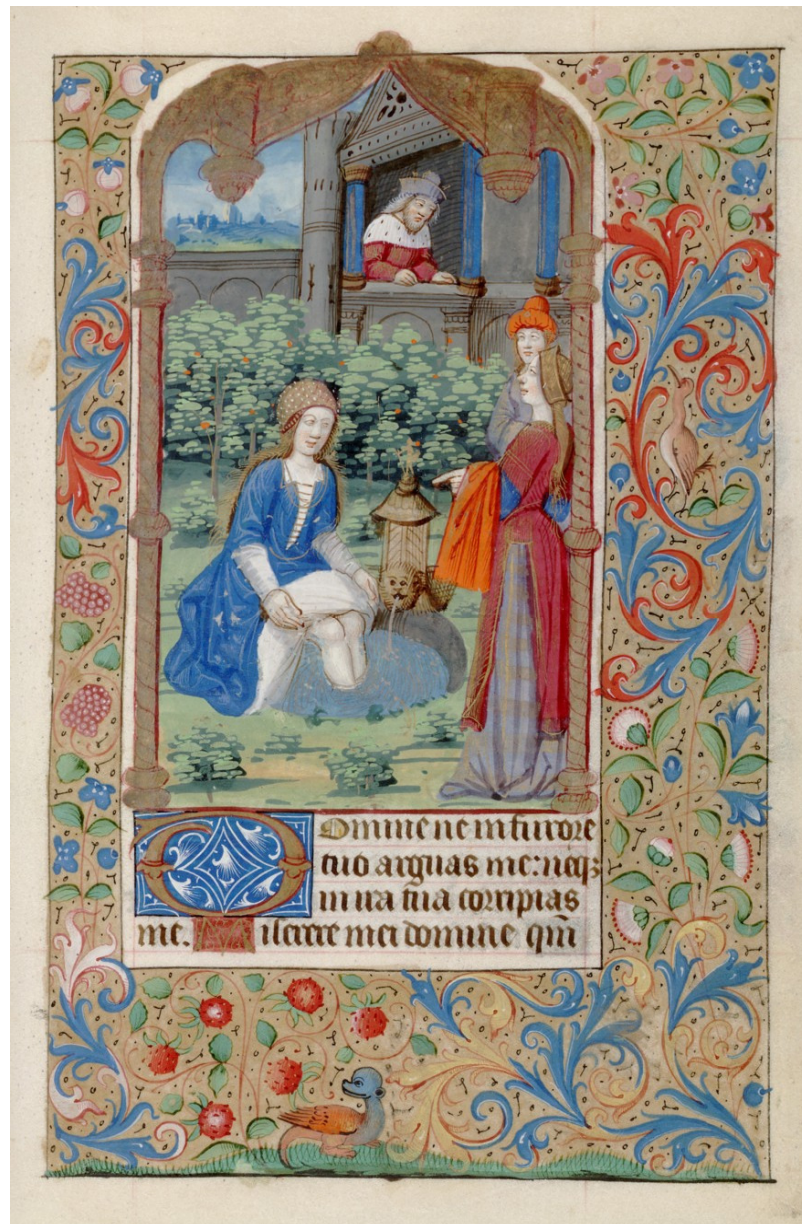 Domine ne in furore
tuo arguas me: neqꝫ
in ira tua corripias
me. Miserere mei domine qm̄